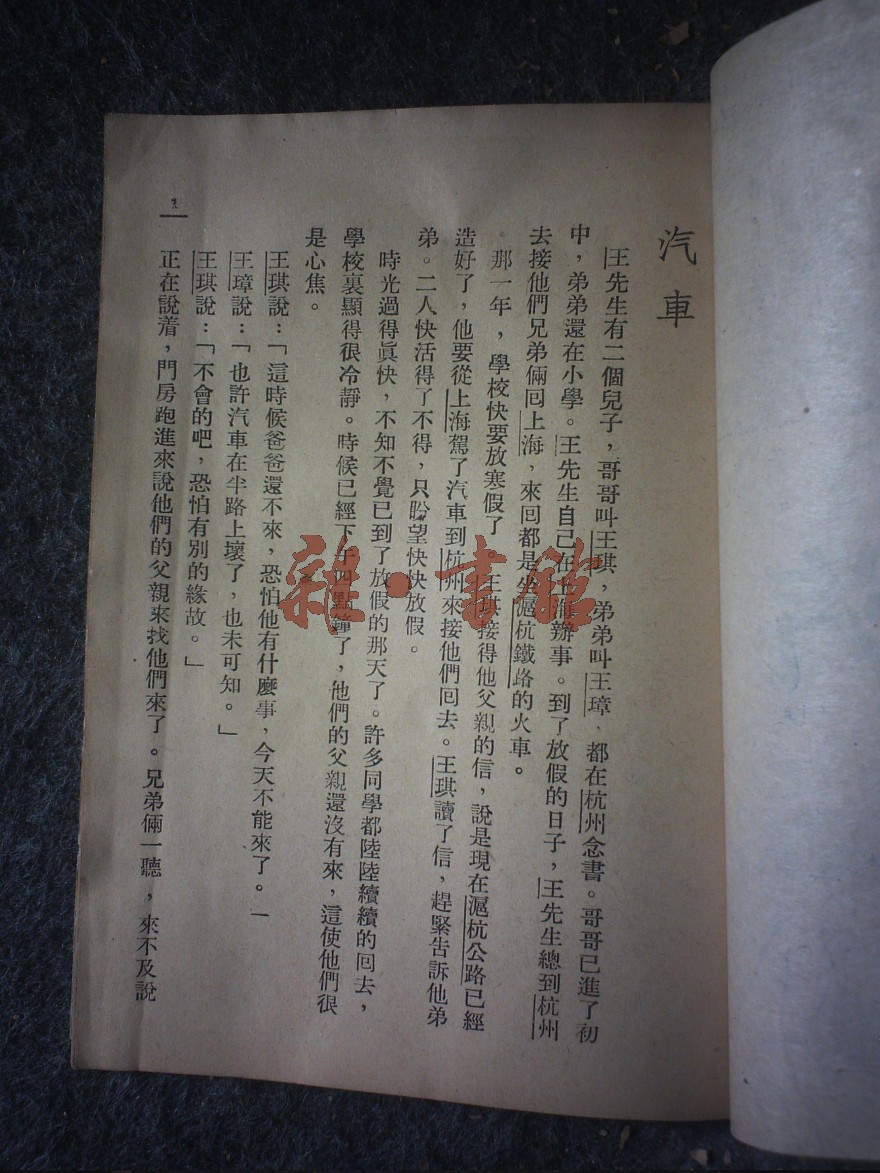 汽車
王先生有二個兒子，哥哥叫王琪，弟弟叫王璋，都在杭州念書。哥哥已進了初
中，弟弟還在小學。王先生自己在上海辦事。到了放假的日子，王先生總到杭州
去接他們兄弟倆回上海，來回都是坐滬杭鐵路的火車。
那一年，學校快要放寒假了，王琪接得他父親的信，說是現在滬杭公路已經
造好了，他要從上海駕了汽車到杭州來接他們回去。王琪讀了信，趕緊告訴他弟
弟。二人快活得了不得，只盼望快快放假。
時光過得眞快，不知不覺已到了放假的那天了。許多同學都陸陸續續的回去，
學校裏顯得很冷靜。時候已經下午四點鐘了，他們的父親還沒有來，這使他們很
是心焦。
王琪說：「這時候爸爸還不來，恐怕他有什麼事，今天不能來了。」
王璋說：「也許汽車在半路上壞了，也未可知。」
王琪說：「不會的吧，恐怕有別的緣故。」
正在說着，門房跑進來說他們的父親來找他們來了。兄弟倆一聽，來不及說
雜·書館